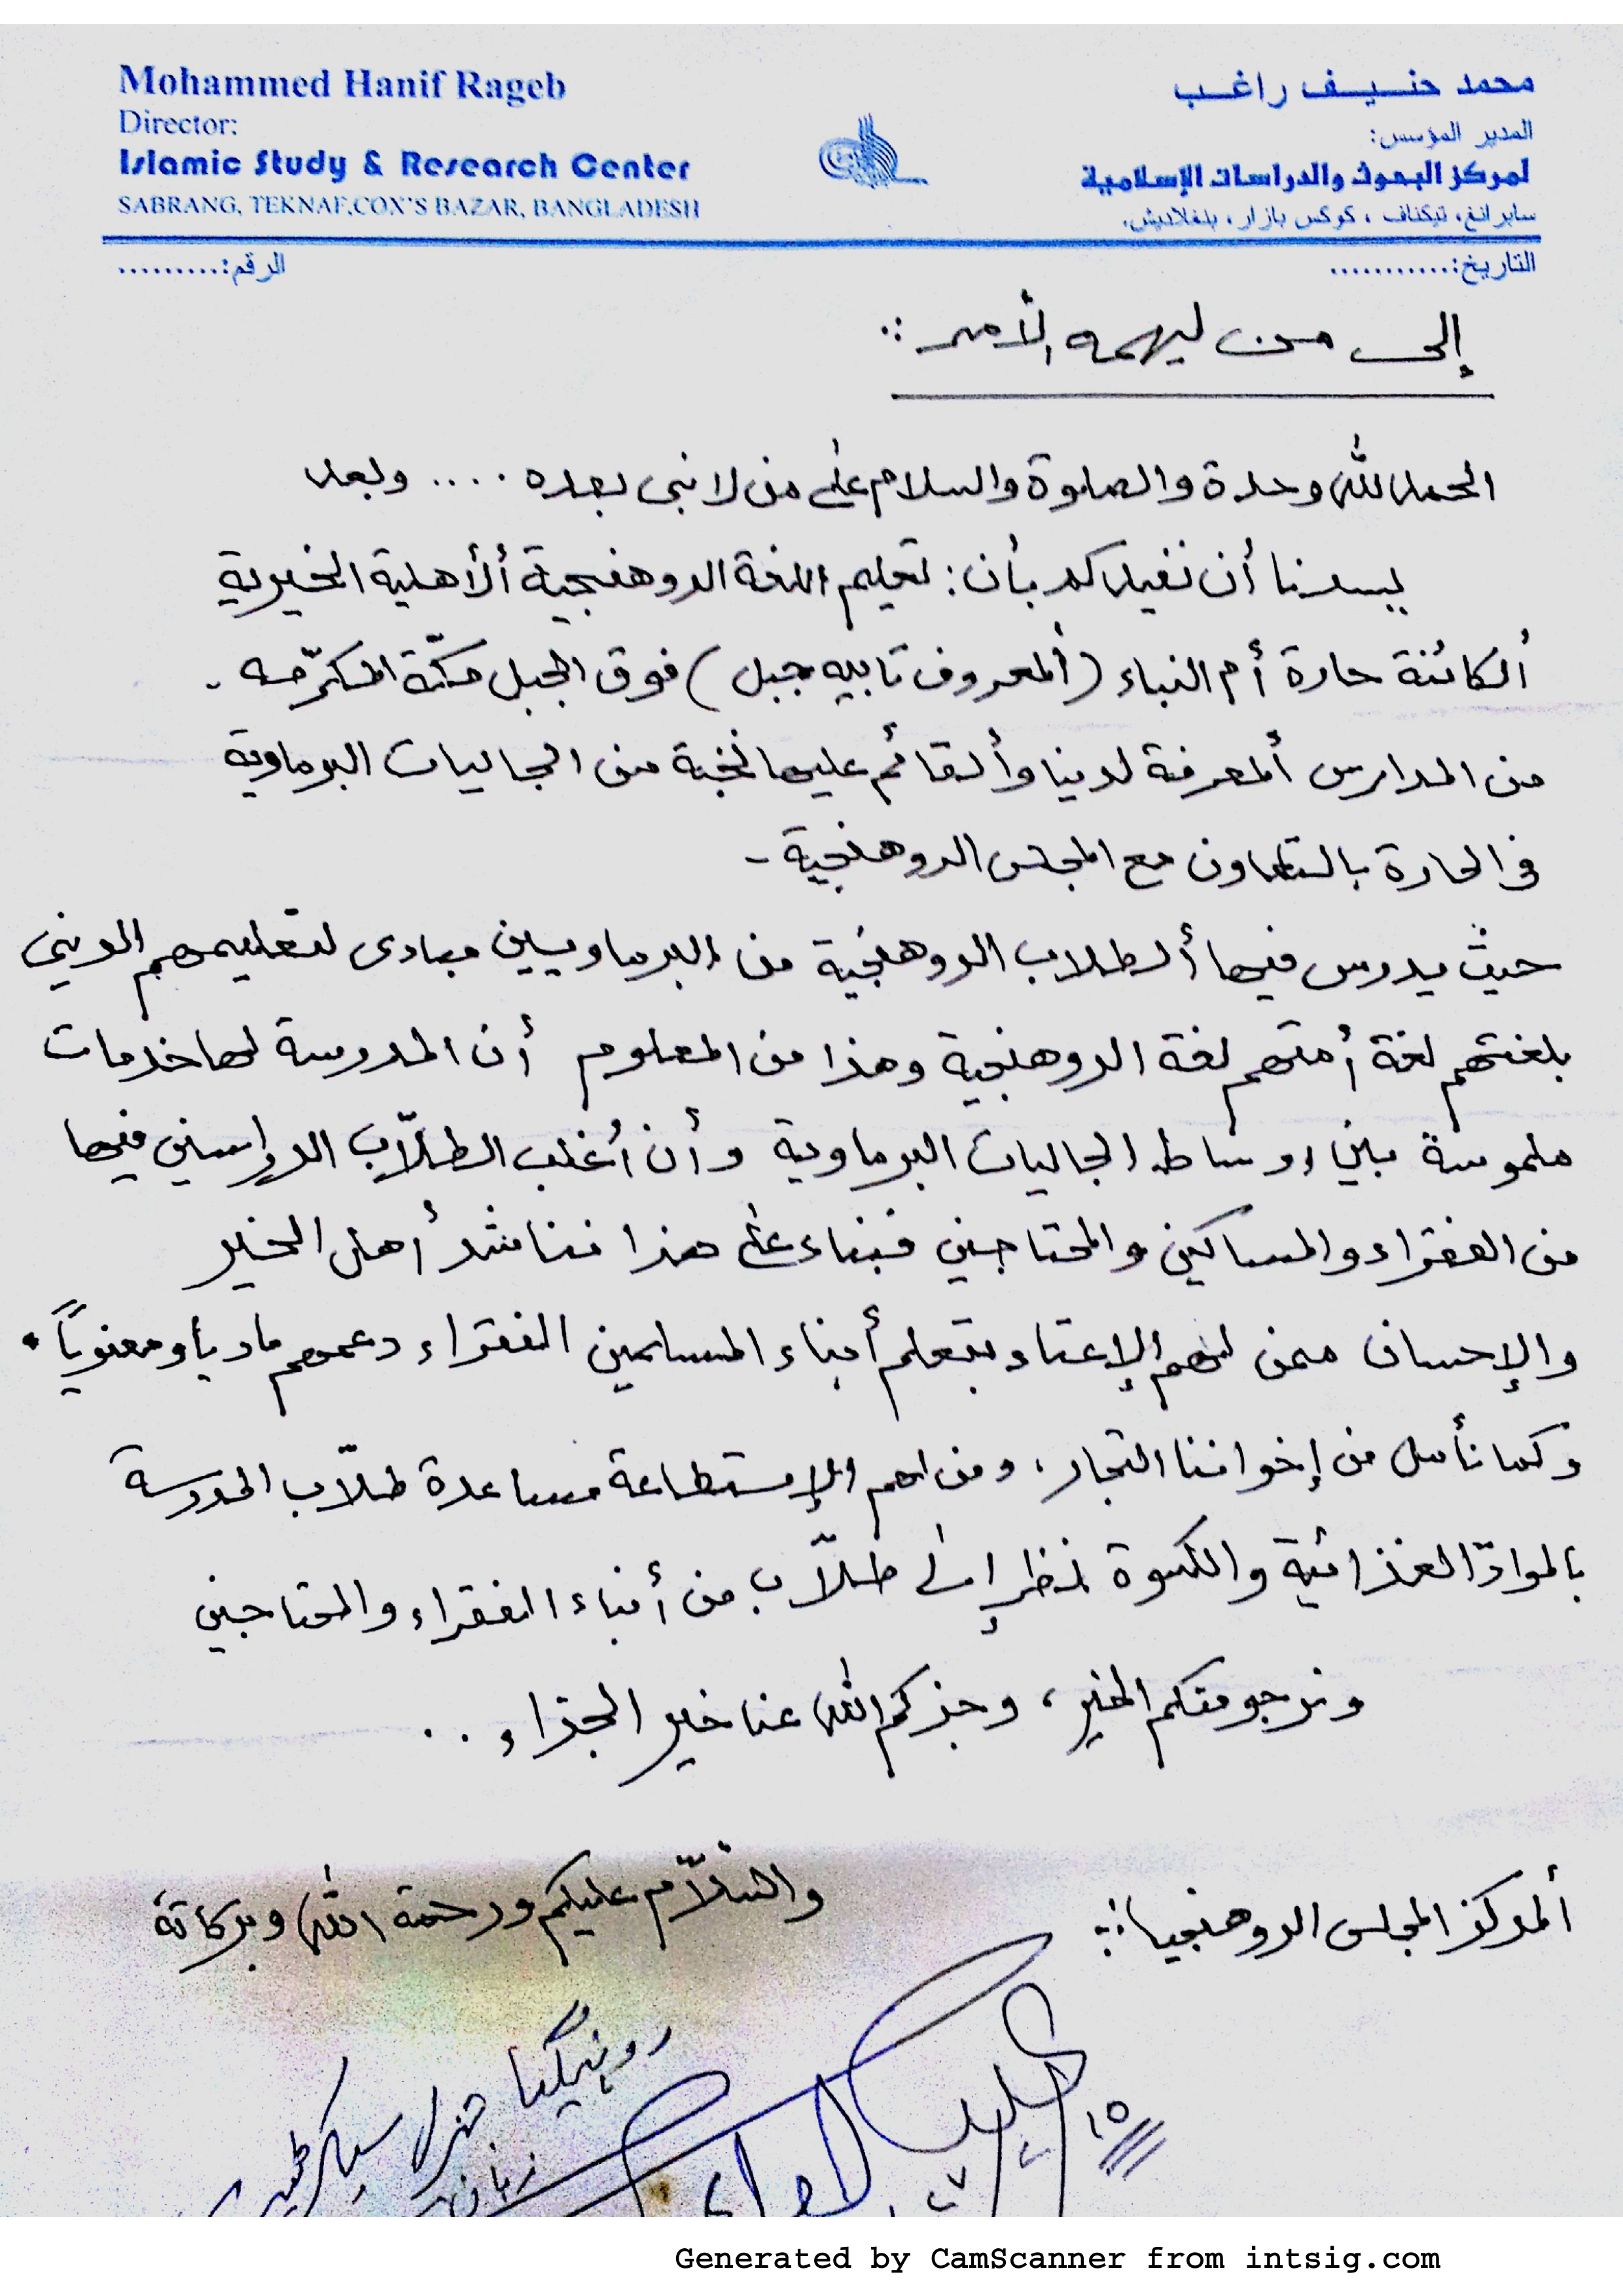 Mohammed Hanif Rageb
Director:
Islamic Study & Research Center
SABRANG, TEKNAF,COX'S BAZAR, BANGLADESH
محمد حنيف راغب
المدير المؤسس:
لمركز البحوث والدراسات الإسلامية
سابرانغ، تيكناف ، كوكس بازار ، بنغلاديش.
التاريخ:............
الرقم:.........
إلى من ليهمه الأمر :.
الحمد لله وحدة والصلوة والسلام على من لا نبى بعده .... وبعد
يسرنا أن نفيدكم بأن: تعليم اللغة الروهنجية ألأهلية الخيرية
ألكائنة حارة أم النباء (ألمعروف تابيه جبل) فوق الجبل مكّة المكرّمه -
من المدارس ألمعرفة لدينا وألقائم عليها نخبة من الجاليات البرماوية
فى الحارة بالتعاون مع المجلس الروهنجية -
حيث يدرس فيها ألطلاب الروهنجية من البرماويين مبادى لتعليمهم الديني
بلغتهم لغة أمتهم لغة الروهنجية وهذا من المعلوم أن المدرسة لها خدمات
ملموسة بين اوساط الجاليات البرماوية وأن أغلب الطلّاب الدراسين فيها
من الفقراء والمساكين والمحتاجين فبناء على هذا نناشد أهل الخير
والإحسان ممن لهم الإعتاد بتعلم أبناء المسلمين الفقراء دعمهم ماديا ومعنوياً .
وكما نأمل من إخواننا التجار، ومن لهم الإستطاعة مساعدة طلّاب المدرسة
بالموادّ الغذائية والكسوة نظر إلى طلّاب من أبناء الفقراء والمحتاجين
ونرجو منكم الخير، وجزكم الله عنا خير الجزاء ..
والسّلام عليكم ورحمة الله وبركاتة
ألمركز المجلس الروهنجيا :.
روہنگیا جنرل سیکرٹیری
زبان
Generated by CamScanner from intsig.com